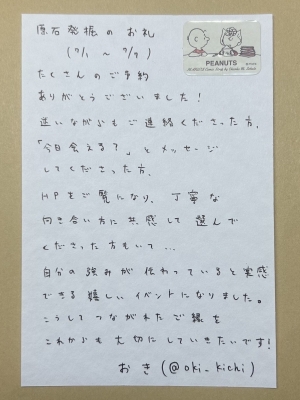 原石発掘のお礼
(7/1 〜 7/7)
PEANUTS
たくさんのご予約
ありがとうございました!
迷いながらもご連絡くださった方、
「今日会える?」とメッセージ
してくださった方、
HPをご覧になり、丁寧な
向き合い方に共感して選んで
くださった方もいて…
自分の強みが伝わっていると実感
できる嬉しいイベントになりました。
こうしてつながれたご縁を
これからも大切にしていきたいです!
おき (@oki_kichi)